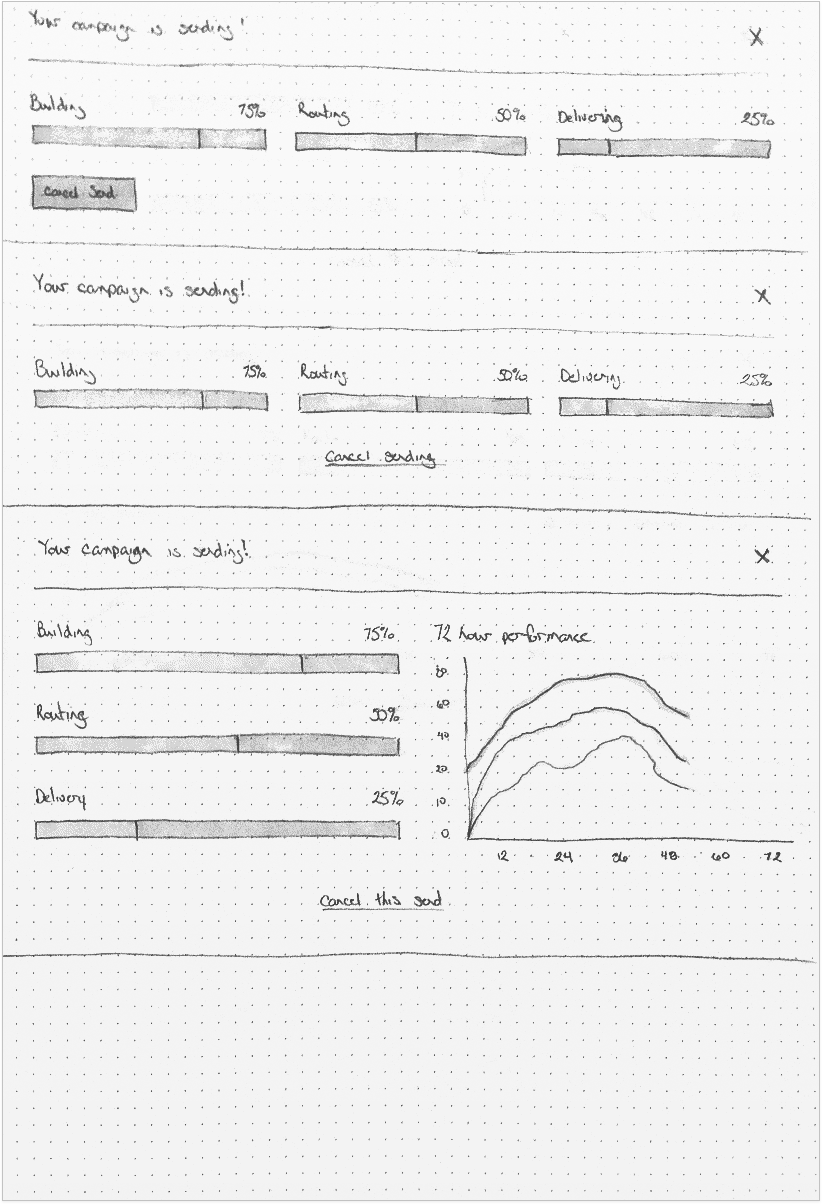 Your campaign is sending! X
Building 75% Routing 50% Delivering 25%
Cancel Send
Your campaign is sending! X
Building 75% Routing 50% Delivering 25%
Cancel sending
Your campaign is sending! X
Building 75%
Routing 50%
Delivery 25%
72 hour performance
80
60
40
20
10
0
12 24 36 48 60 72
Cancel this send